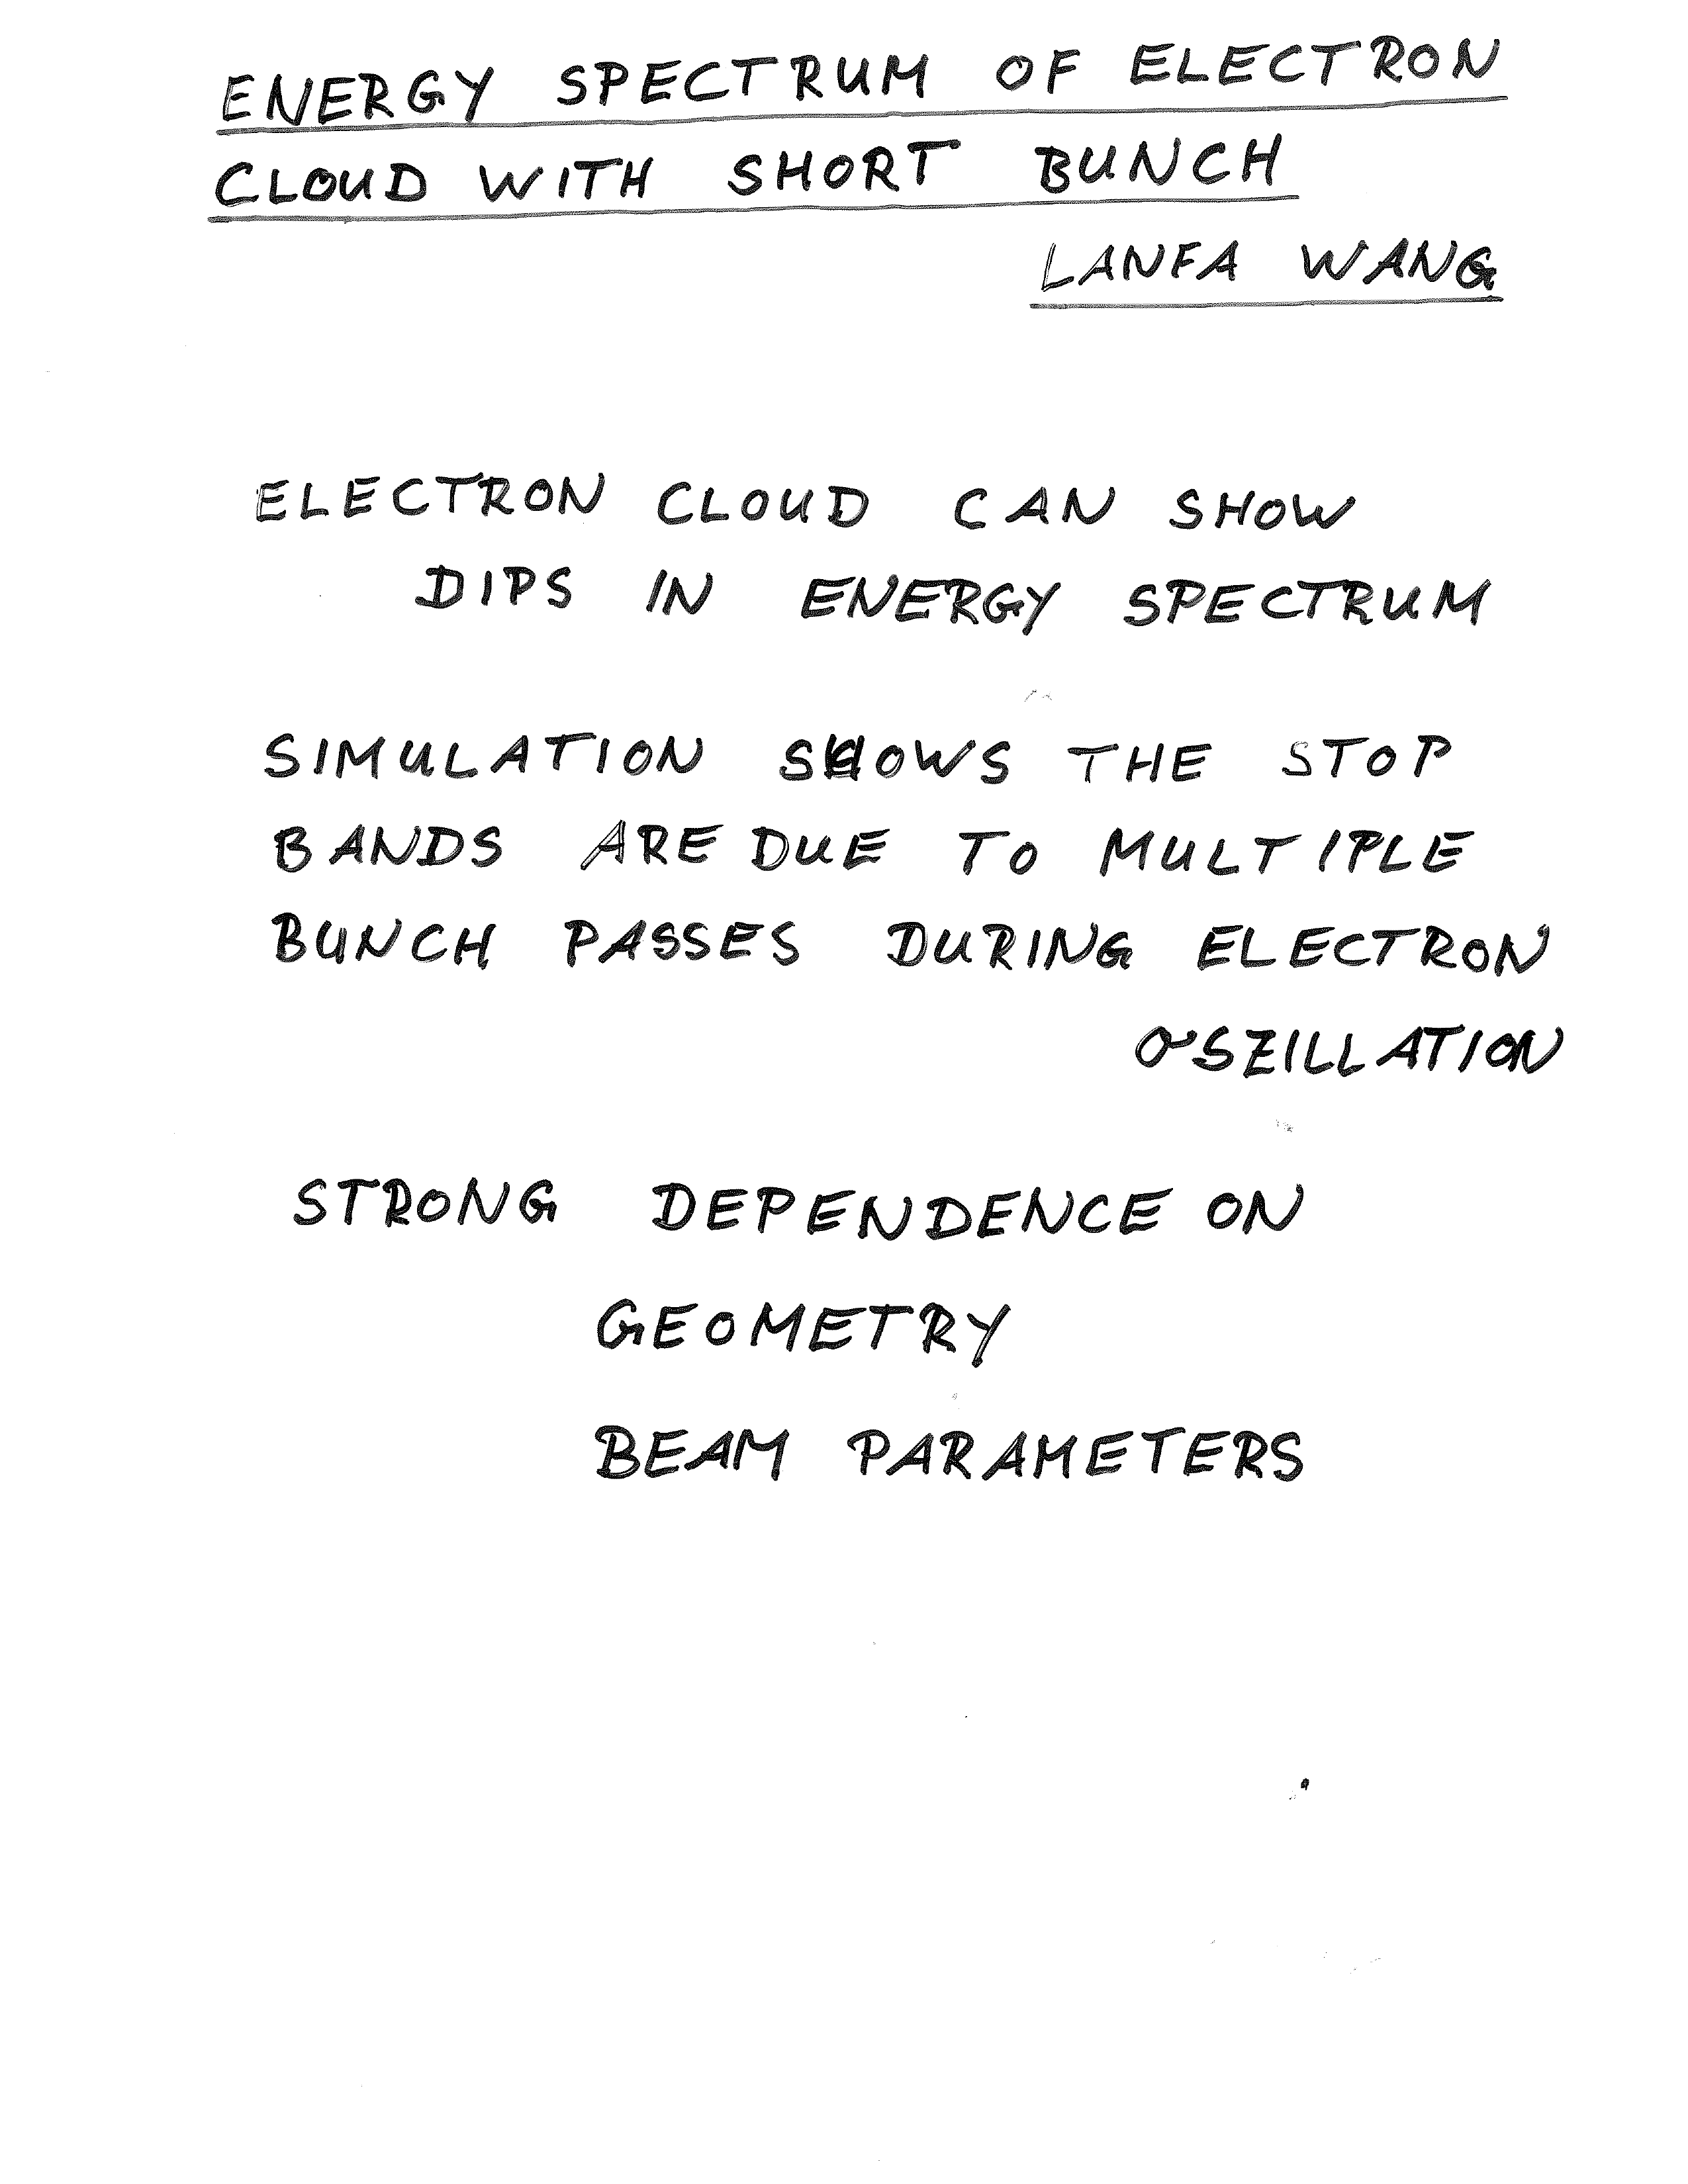 ENERGY SPECTRUM OF ELECTRON
CLOUD WITH SHORT BUNCH
LANFA WANG
ELECTRON CLOUD CAN SHOW
DIPS IN ENERGY SPECTRUM
SIMULATION SHOWS THE STOP
BANDS ARE DUE TO MULTIPLE
BUNCH PASSES DURING ELECTRON
OSZILLATION
STRONG DEPENDENCE ON
GEOMETRY
BEAM PARAMETERS